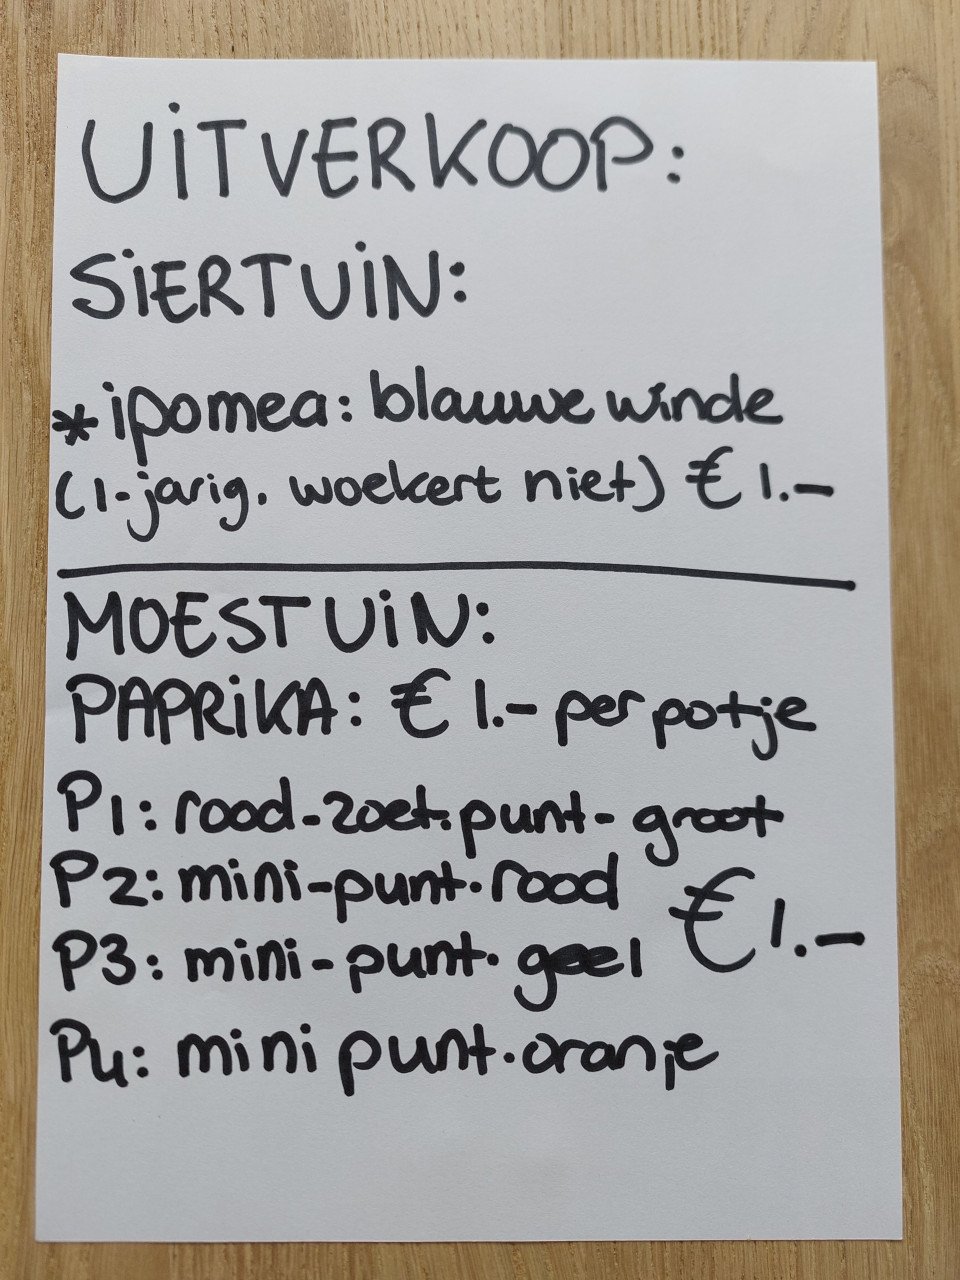 UITVERKOOP:
SIERTUIN:
* ipomea: blauwe winde
(1-jarig. woekert niet) € 1.-
MOESTUIN:
PAPRIKA: € 1.- per potje
P1: rood-zoet.punt-groot
P2: mini-punt.rood
€ 1.-
P3: mini-punt.geel
P4: mini punt.oranje